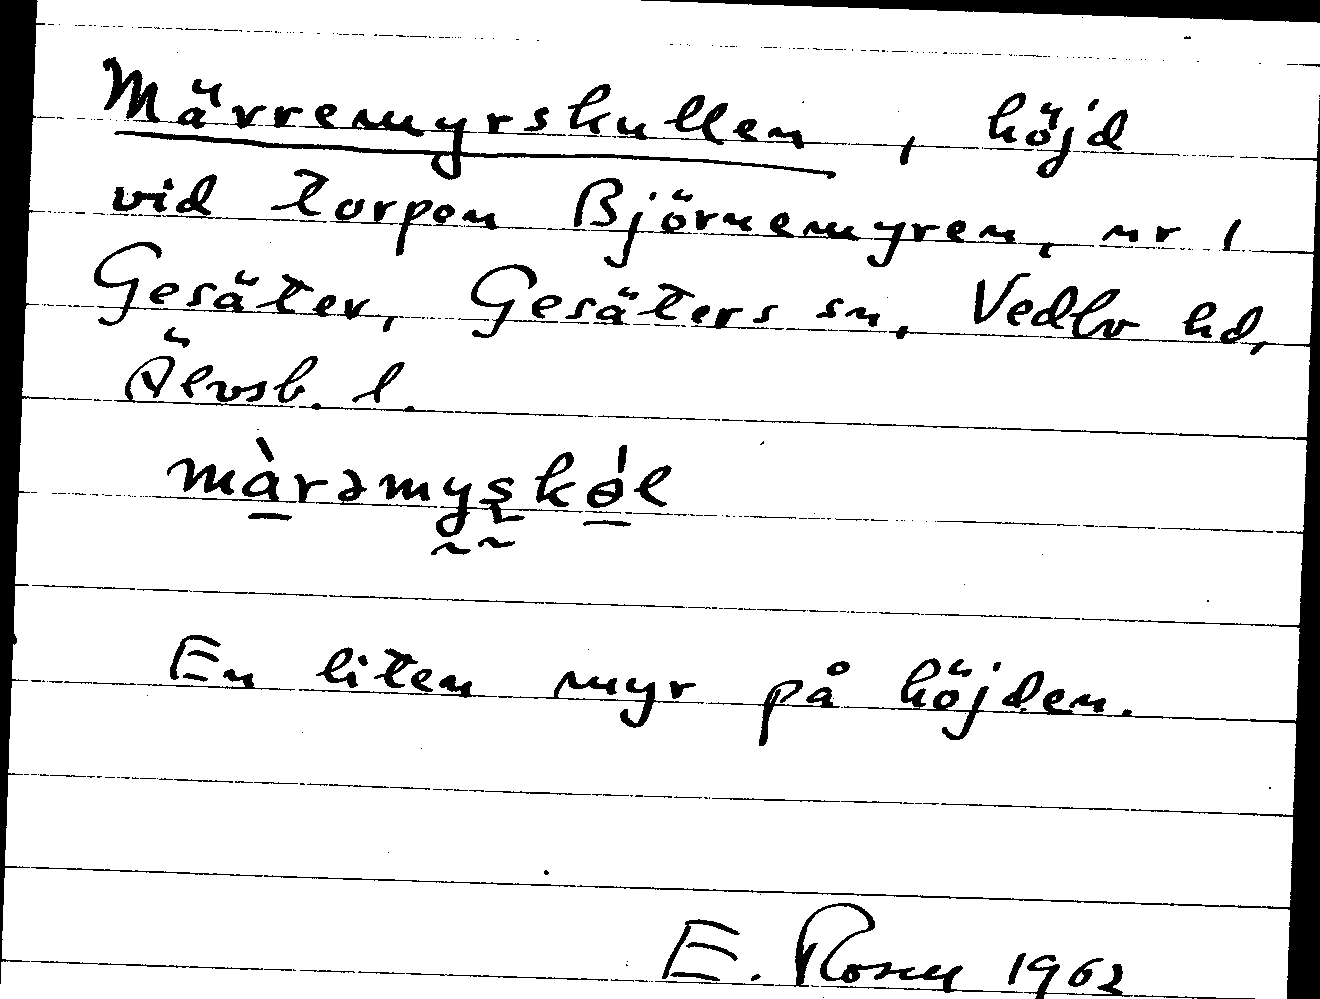 Märremyrskullen, höjd
vid torpen Björnemyren, nr 1
Gesäter, Gesäters sn, Vedbo hd,
Älvsb. l.
màrəmyskɵ́l
En liten myr på höjden.
E. Rosen 1962